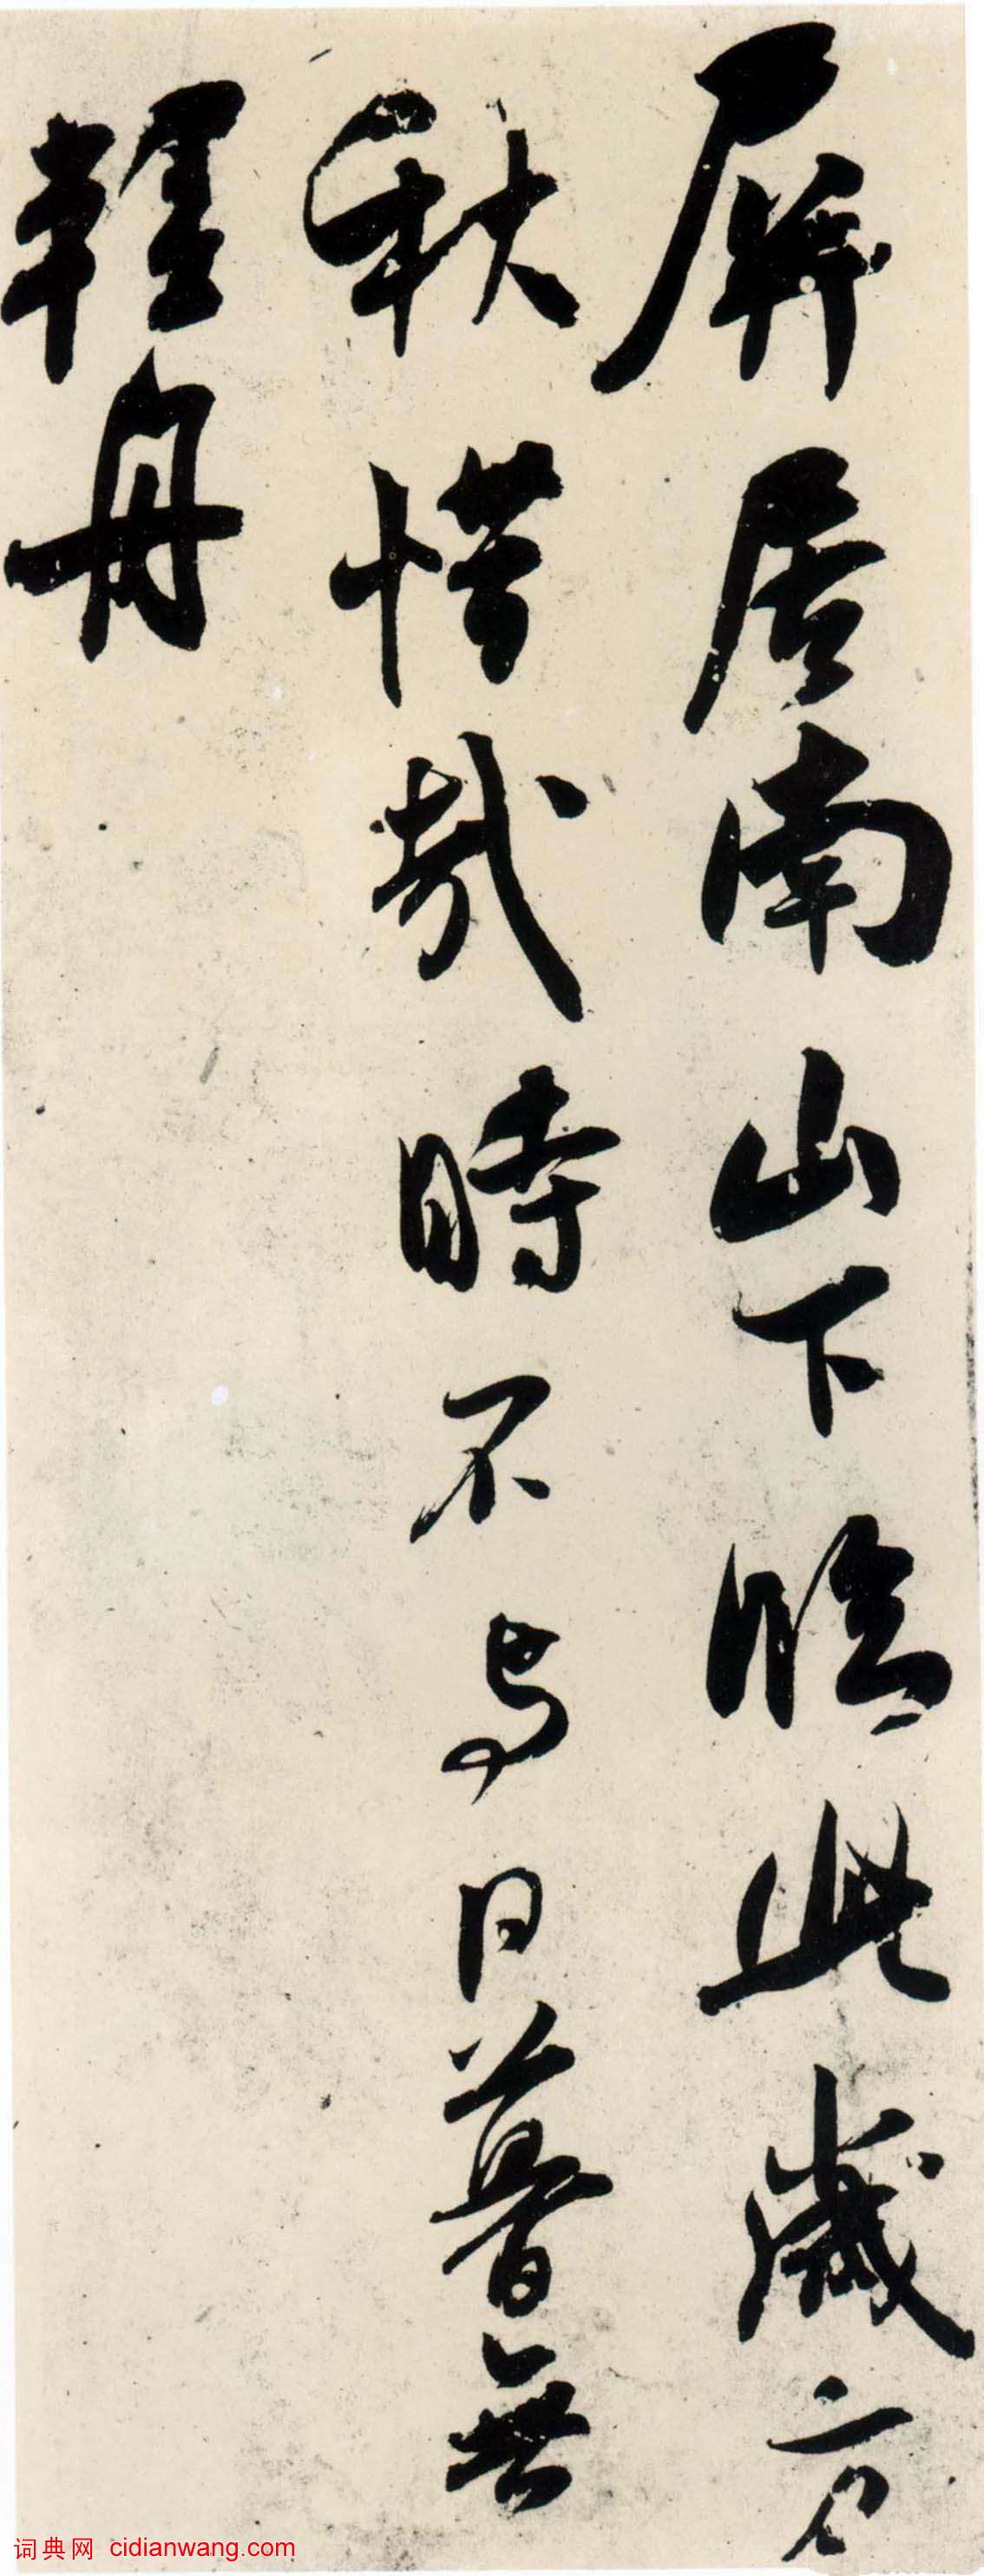 屏居南山下臨此歲方
秋惜哉時不与日暮無
輕舟
词典网 cidianwang.com